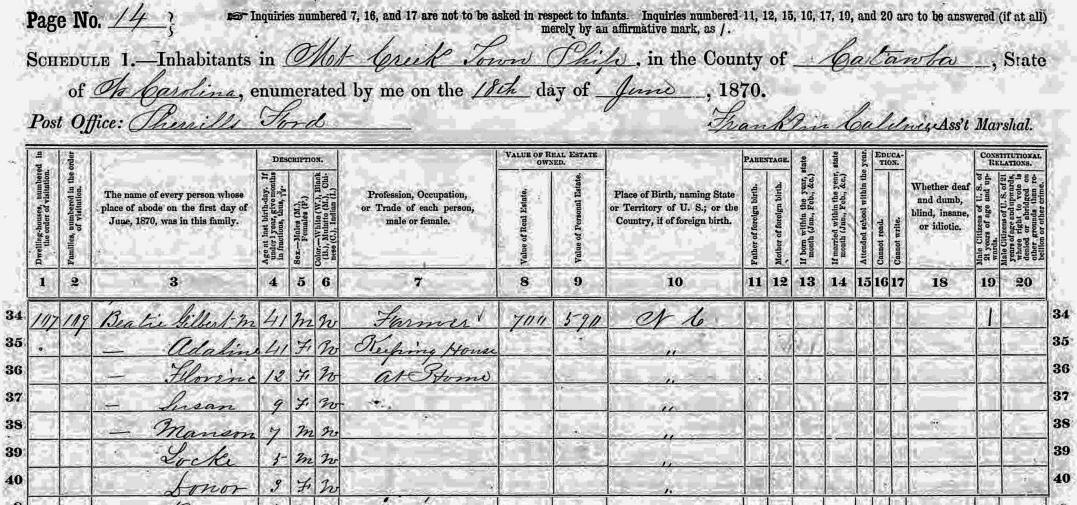 Page No. 14
☞ Inquiries numbered 7, 16, and 17 are not to be asked in respect to infants. Inquiries numbered 11, 12, 15, 16, 17, 19, and 20 are to be answered (if at all)
merely by an affirmative mark, as /.
SCHEDULE 1.—Inhabitants in Mt Creek Town Ship, in the County of Catawba, State
of N Carolina, enumerated by me on the 18th day of June, 1870.
Post Office: Sherrills Ford Franklin Ass't Marshal.
DESCRIPTION. VALUE OF REAL ESTATE OWNED. PARENTAGE. EDUCATION. CONSTITUTIONAL RELATIONS.
Dwelling-houses, numbered in the order of visitation.
Families, numbered in the order of visitation.
The name of every person whose place of abode on the first day of June, 1870, was in this family.
Age at last birth-day. If under 1 year, give months in fractions, thus,
Sex.—Males (M.), Females (F.)
Color.—White (W.), Black (B.), Mulatto (M.), Chinese (C.), Indian (I.)
Profession, Occupation, or Trade of each person, male or female.
Value of Real Estate.
Value of Personal Estate.
Place of Birth, naming State or Territory of U. S.; or the Country, if of foreign birth.
Father of foreign birth.
Mother of foreign birth.
If born within the year, state month (Jan., Feb., &c.)
If married within the year, state month (Jan., Feb., &c.)
Attended school within the year.
Cannot read.
Cannot write.
Whether deaf and dumb, blind, insane, or idiotic.
Male Citizens of U. S. of 21 years of age and upwards.
Male Citizens of U. S. of 21 years of age and upwards, whose right to vote is denied or abridged on other grounds than rebellion or other crime.
1 2 3 4 5 6 7 8 9 10 11 12 13 14 15 16 17 18 19 20
34 107 109 Beatie Gilbert M 41 M W Farmer ✓ 700 590 N C 1 34
35 — Adaline 41 F W Keeping House " 35
36 — Florinc 12 F W At Home " 36
37 — Susan 9 F W " 37
38 — Manson 7 M W " 38
39 Locke 5 M W " 39
40 Donor 3 F W " 40